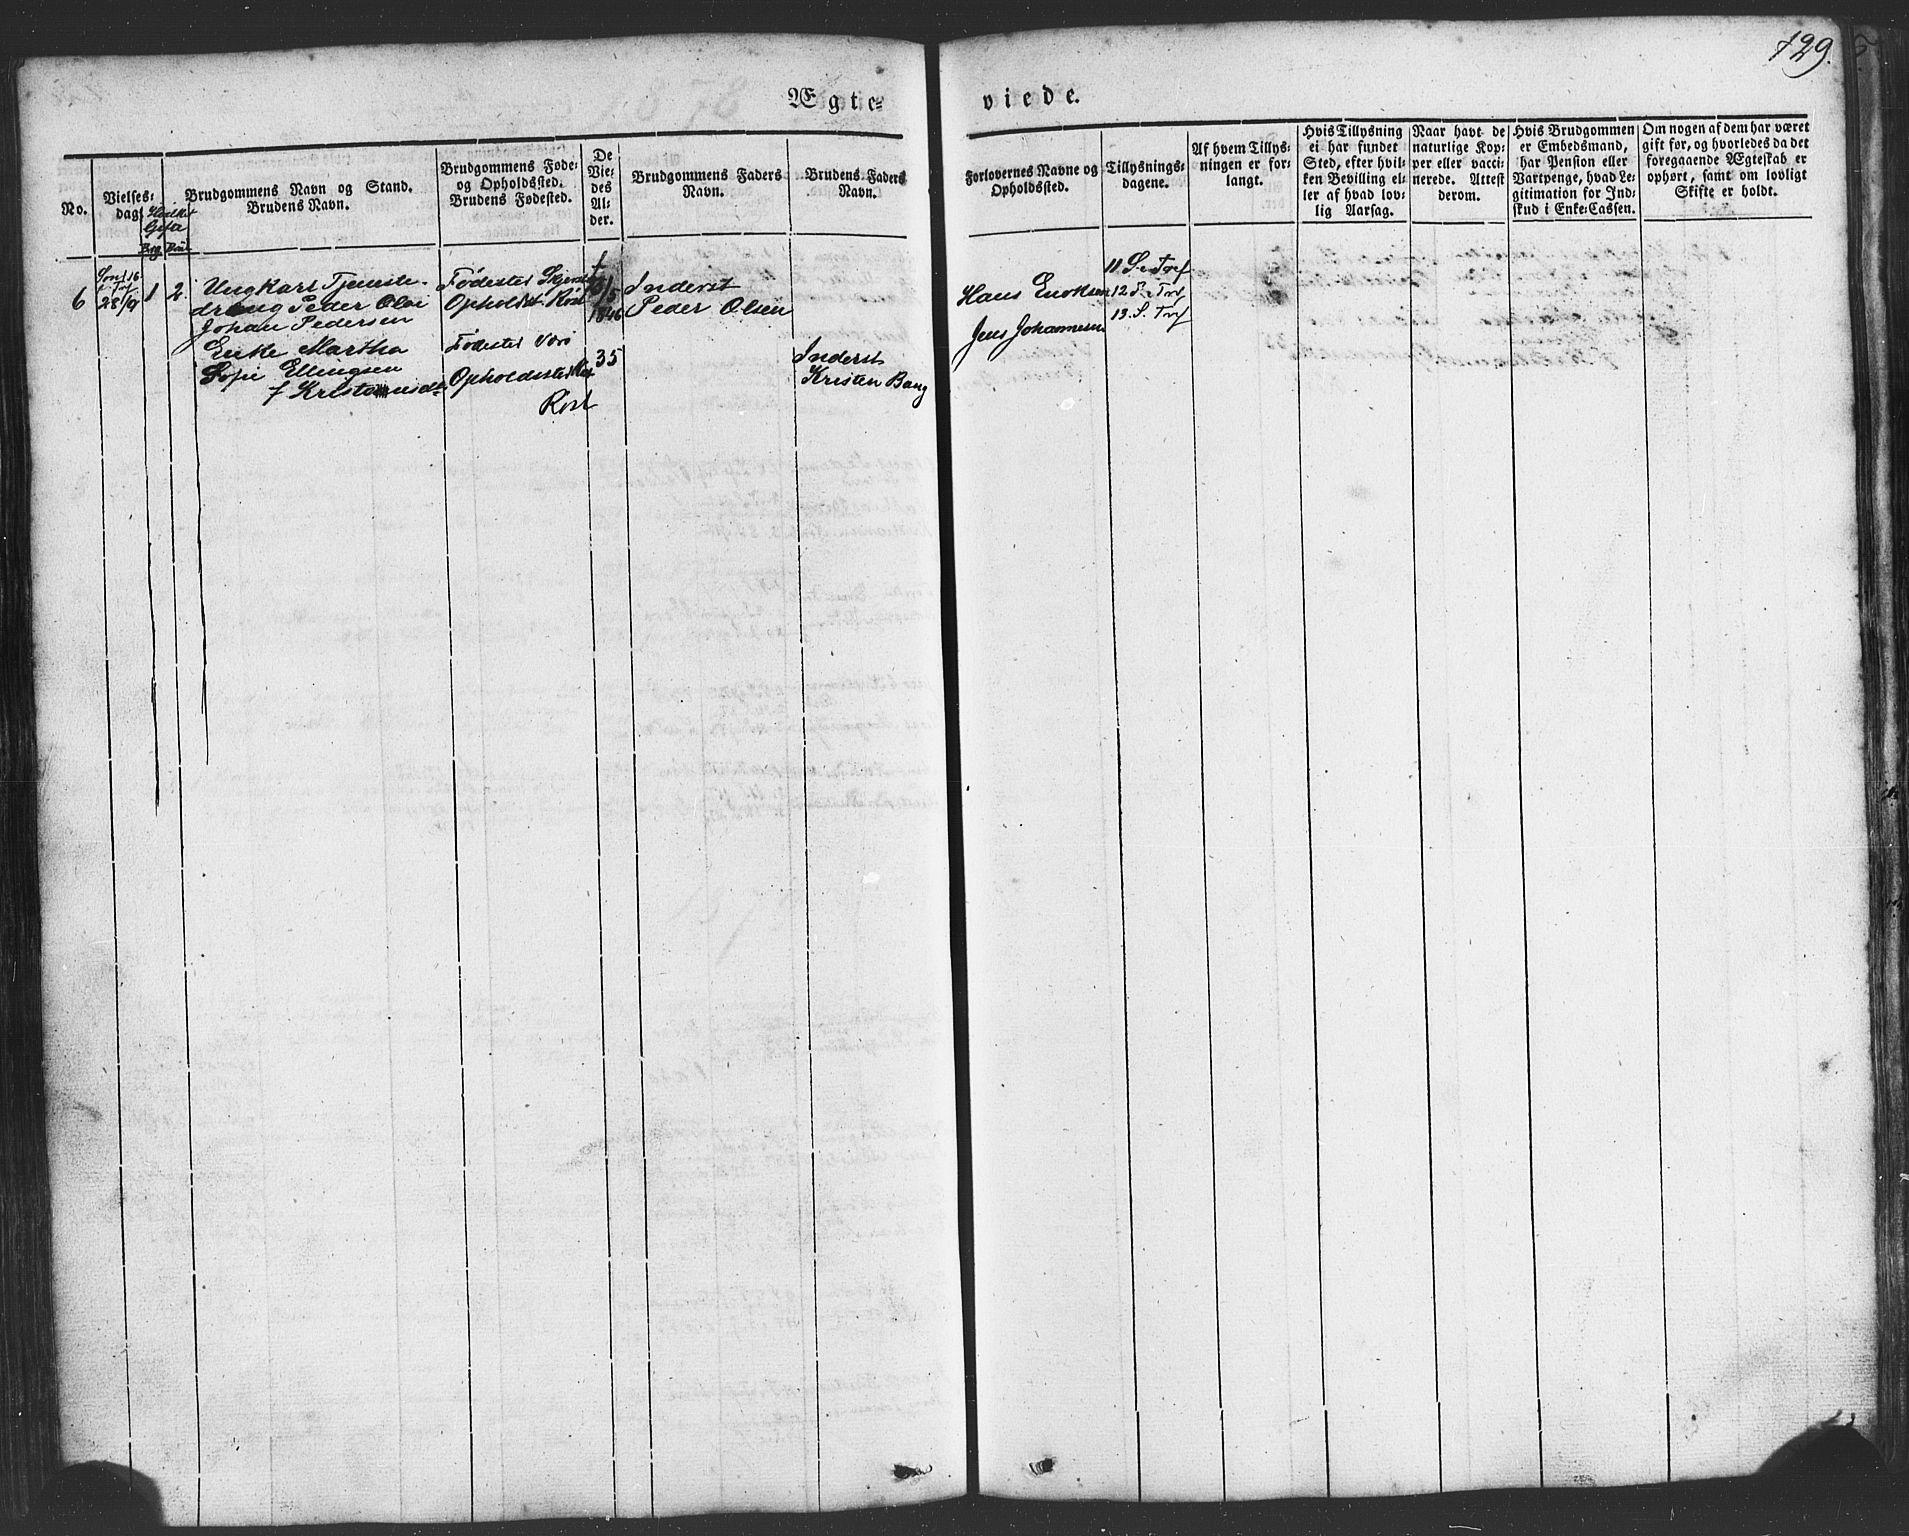 129.
Ægte-
viede.
No.
Vielses-
dag.
Hvilket
Gifte
Brg Brud
Brudgommens Navn og Stand.
Brudens Navn.
Brudgommens Føde-
og Opholdssted.
Brudens Fødested.
De
Vie-
des
Al-
der.
Brudgommens Faders
Navn.
Brudens Faders
Navn.
Forlovernes Navne og
Opholdssted.
Tillysnings-
dagene.
Af hvem Tillys-
ningen er for-
langt.
Hvis Tillysning
ei har fundet
Sted, efter hvil-
ken Bevilling el-
ler af hvad lov-
lig Aarsag.
Naar havt de
naturlige Kop-
per eller vacci-
nerede. Attest
derom.
Hvis Brudgommen
er Embedsmand,
har Pension eller
Vartpenge, hvad Le-
gitimation for Ind-
skud i Enke-Cassen.
Om nogen af dem har været
gift før, og hvorledes da det
foregaaende Ægteskab er
ophørt, samt om lovligt
Skifte er holdt.
6
28/9
1
2.
Ungkarl Tjeneste-
dreng Peder Olai
Johan Pedersen
Enke Martha
Sofie Ellingsen
f Kristensdr
Fødested
Opholdst Røst
Fødested Værø
Opholdssted
Røst
1846
35
Inderst
Peder Olsen
Inderst
Kristen Bang
Hans Enoksen
Jens Johannesen
11 S. e Tref
12 S. e Tref
13. S. Tref